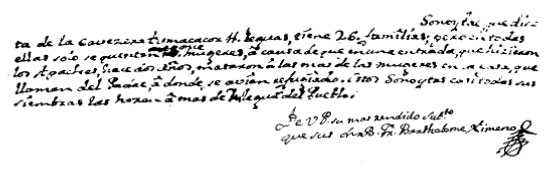 Sonoytac que dis-
ta de la Cavezera Tumacacori 4 leguas, tiene 26 familias; pero en todas
ellas solo se quentan mugeres, à causa de que en una entrada, que hizieron
los Apaches, hace dos años, mataron à las mas de las mugeres en la casa, que
llaman del Padre, à donde se avian refugiado. estos Sonoytas casi todas sus
siembras las hazen à mas de legua del Pueblo.
De V P. su mas rendido sub.to
que sus M. B. Fr. Bartholome Ximeno